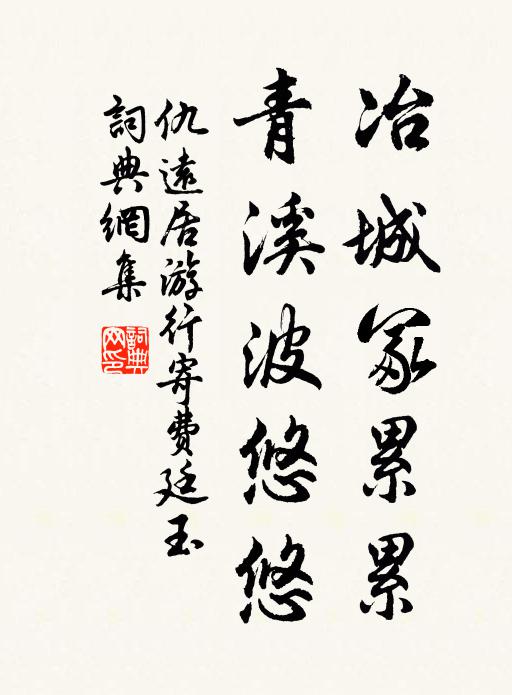 冶城冢累累
青溪波悠悠
仇遠居游行寄費廷玉
詞典網集
詞典网印